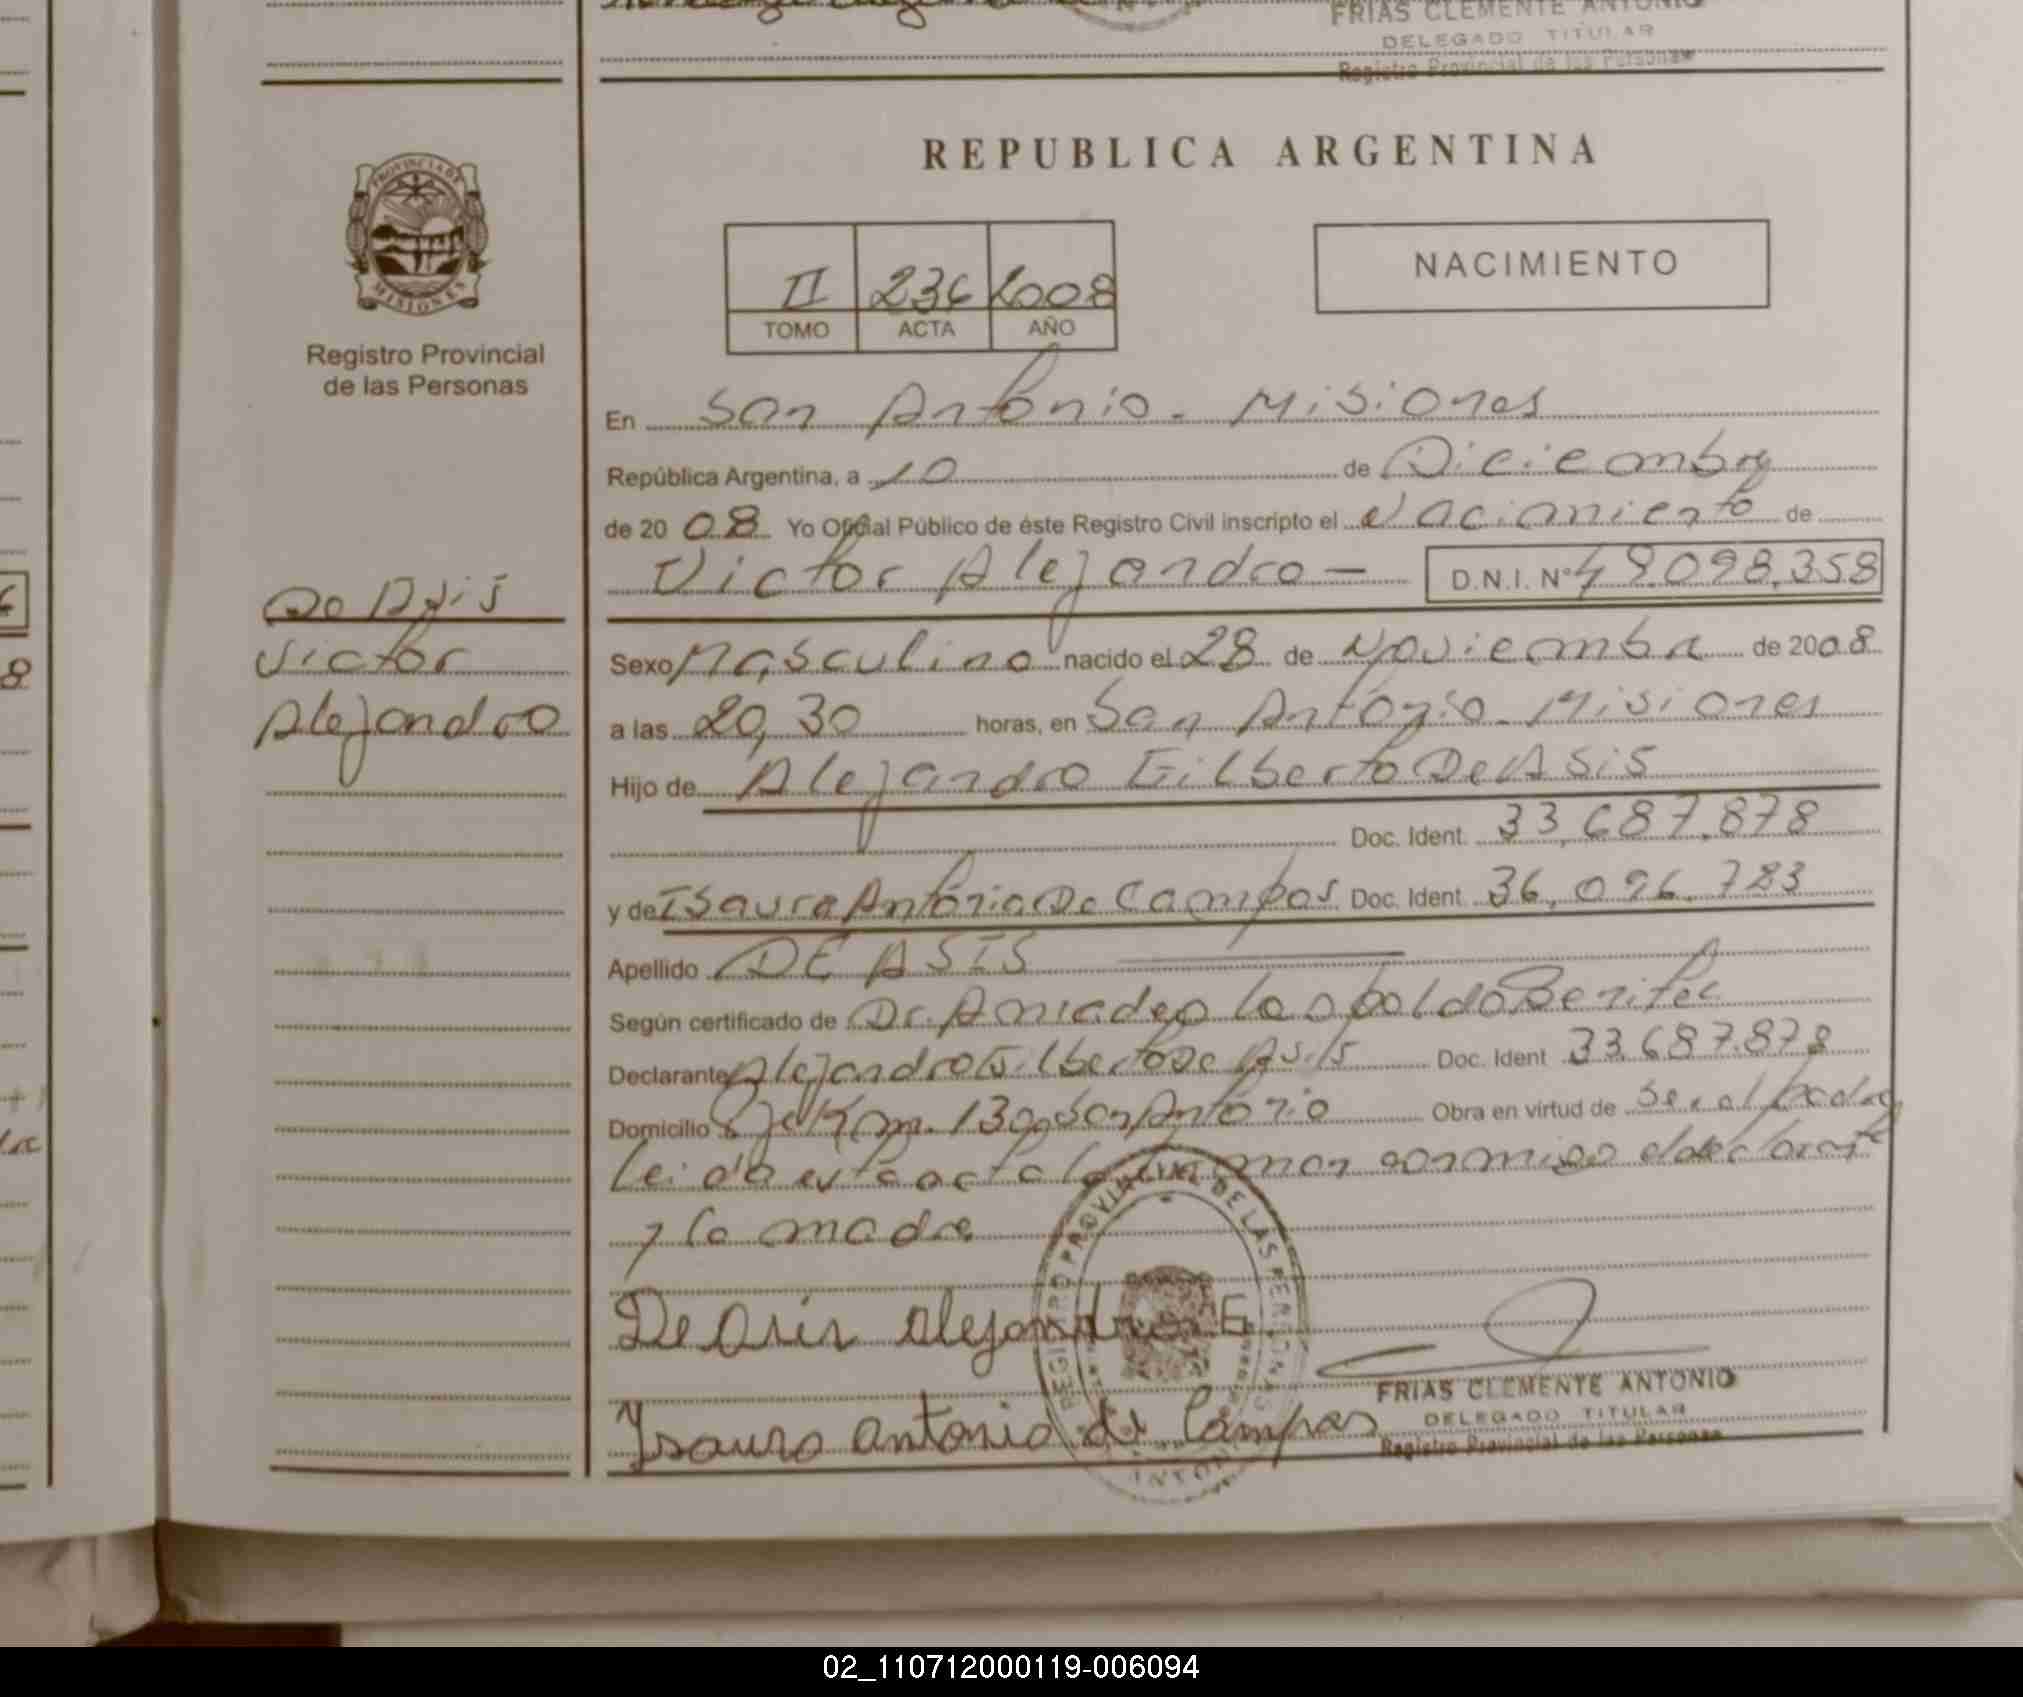 FRIAS CLEMENTE ANTONIO
DELEGADO TITULAR
Registro Provincial de las Personas
REPUBLICA ARGENTINA
PROVINCIA DE
MISIONES
Registro Provincial
de las Personas
II 236 2008
TOMO ACTA AÑO
NACIMIENTO
En San Antonio - Misiones
República Argentina, a 10 de Diciembre
de 2008 Yo Oficial Público de éste Registro Civil inscripto el Nacimiento de
Victor Alejandro - D.N.I. Nº 49.098.358
De Asis
Victor
Alejandro
Sexo Masculino nacido el 28 de Noviembre de 2008
a las 20,30 horas, en San Antonio - Misiones
Hijo de Alejandro Gilberto De Asis
Doc. Ident. 33.687.878
y de Isaura Antonia De Campos Doc. Ident. 36.096.783
Apellido DE ASIS
Según certificado de Dr. Amadeo Leopoldo Benitez
Declarante Alejandro Gilberto De Asis Doc. Ident 33.687.878
Domicilio Km. 130 San Antonio Obra en virtud de Ser el padre
Leida esta acta la firman conmigo el declarante
y la madre
De Asis Alejandro E
REGISTRO PROVINCIAL DE LAS PERSONAS
FRIAS CLEMENTE ANTONIO
DELEGADO TITULAR
Registro Provincial de las Personas
Ysaura antonia de Campos
02_110712000119-006094